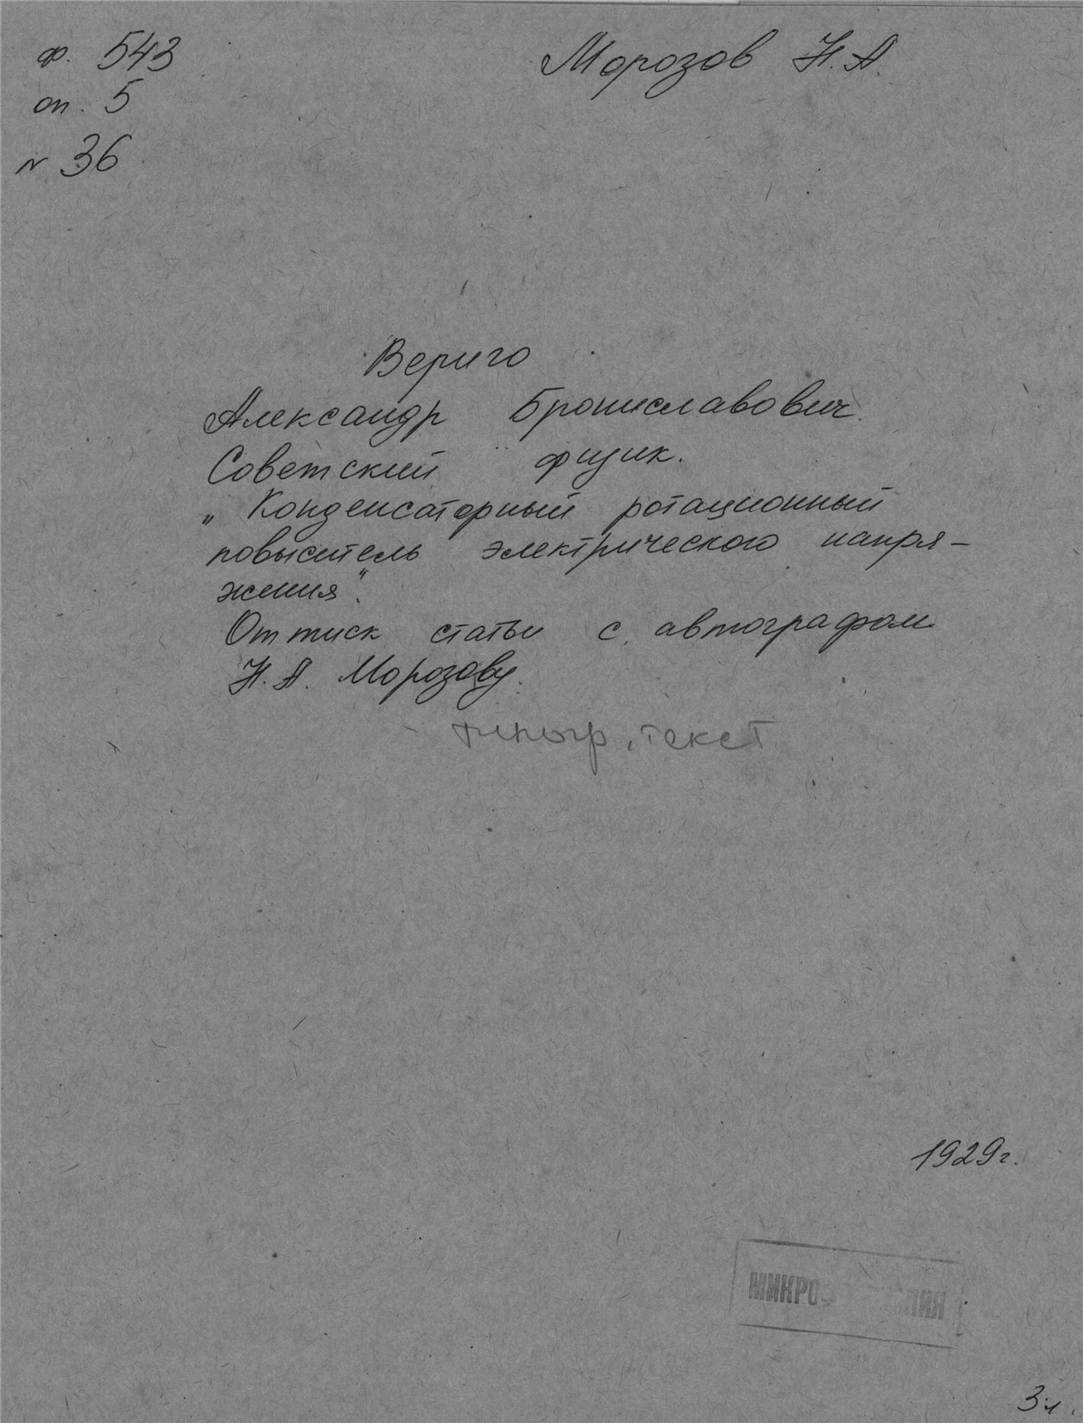 ф. 543
Морозов Н.А.
оп. 5
№ 36
Вериго
Александр Брониславович.
Советский физик.
„Конденсаторный ротационный
повыситель электрического напря-
жения".
Оттиск статьи с автографом
Н.А. Морозову.
типогр. текст
1929 г.
3 л.